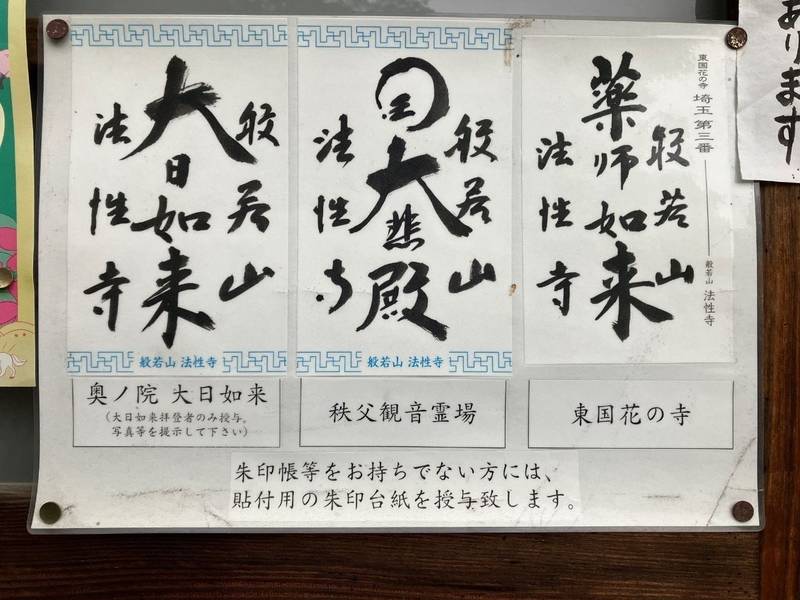 般若山
大日如来
法性寺
般若山 法性寺
般若山
大悲殿
法性寺
般若山 法性寺
東国花の寺 埼玉第三番
般若山 法性寺
般若山
薬師如来
法性寺
奥ノ院 大日如来
(大日如来拝登者のみ授与。
写真等を提示して下さい)
秩父観音霊場
東国花の寺
朱印帳等をお持ちでない方には、
貼付用の朱印台紙を授与致します。
あります